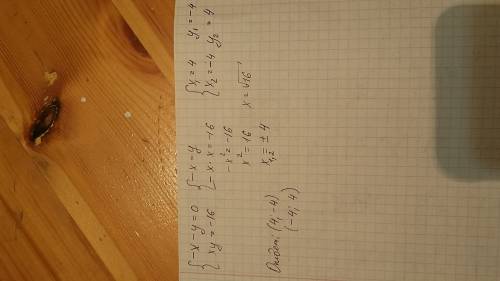 { -x-y=0
xy=-16
{ -x=y
-x·x=-16
-x²=-16
x²=16
x₁,₂=±4
{ x₁=4 y₁=-4
x₂=-4 y₂=4
x=√16
Ответ: (4;-4)
(-4; 4)